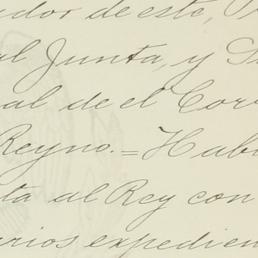 dor de este,
Junta, y
al de el Cor
Reyno.=Hab
ta al Rey con
rios expedien